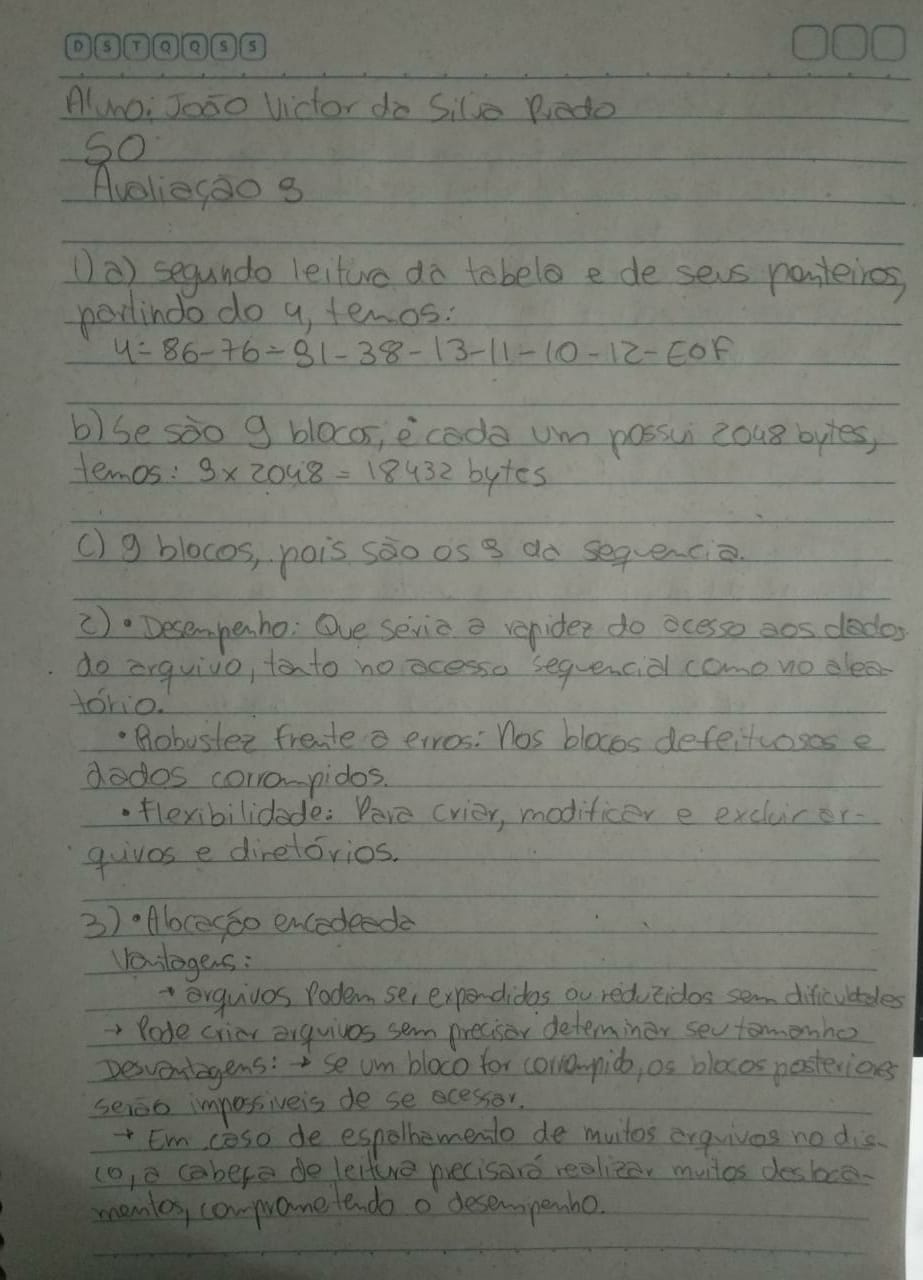 D S T Q Q S S
Aluno: João Victor da Silva Prado
SO
Avaliação 3
1) a) segundo leitura da tabela e de seus ponteiros,
partindo do 4, temos:
4-86-76-91-38-13-11-10-12-EOF
b) Se são 9 blocos, e cada um possui 2048 bytes,
temos: 9x2048 = 18432 bytes
c) 9 blocos, pois são os 9 da sequencia.
2) • Desempenho: Que séria a rapidez do acesso aos dados
do arquivo, tanto no acesso sequencial como no alea-
tório.
• Robustez frente a erros: Nos blocos defeituosos e
dados corrompidos.
• Flexibilidade: Para criar, modificar e excluir ar-
quivos e diretórios.
3) • Alocação encadeada
Vantagens:
→ arquivos Podem ser expandidos ou reduzidos sem dificuldades
→ Pode criar arquivos sem precisar determinar seu tamanho
Desvantagens: → Se um bloco for corrompido, os blocos posteriores
serão impossiveis de se acessar.
→ Em caso de espalhamento de muitos arquivos no dis-
co, a cabeça de leitura precisará realizar muitos desloca-
mentos, comprometendo o desempenho.